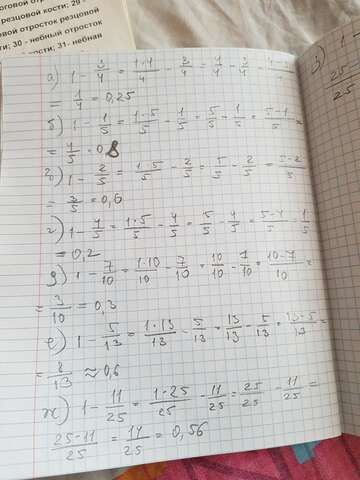 оговой отрос
резцовой кости; 29 -
отросток резцовой
ти; 30 - небный отросток
ости; 31 - небная
а) 1 - 3/4 = 1·4/4 - 3/4 = 4/4 - 3/4 =
= 1/4 = 0,25
б) 1 - 1/5 = 1·5/5 - 1/5 = 5/5 - 1/5 = 5-1/5 =
= 4/5 = 0,8
в) 1 - 2/5 = 1·5/5 - 2/5 = 5/5 - 2/5 = 5-2/5
= 3/5 = 0,6
г) 1 - 4/5 = 1·5/5 - 4/5 = 5/5 - 4/5 = 5-4/5 = 1/5
= 0,2
д) 1 - 7/10 = 1·10/10 - 7/10 = 10/10 - 7/10 = 10-7/10 =
= 3/10 = 0,3
е) 1 - 5/13 = 1·13/13 - 5/13 = 13/13 - 5/13 = 13-5/13 =
= 8/13 ≈ 0,6
ж) 1 - 11/25 = 1·25/25 - 11/25 = 25/25 - 11/25 =
25-11/25 = 14/25 = 0,56
з) 1 -
25/25